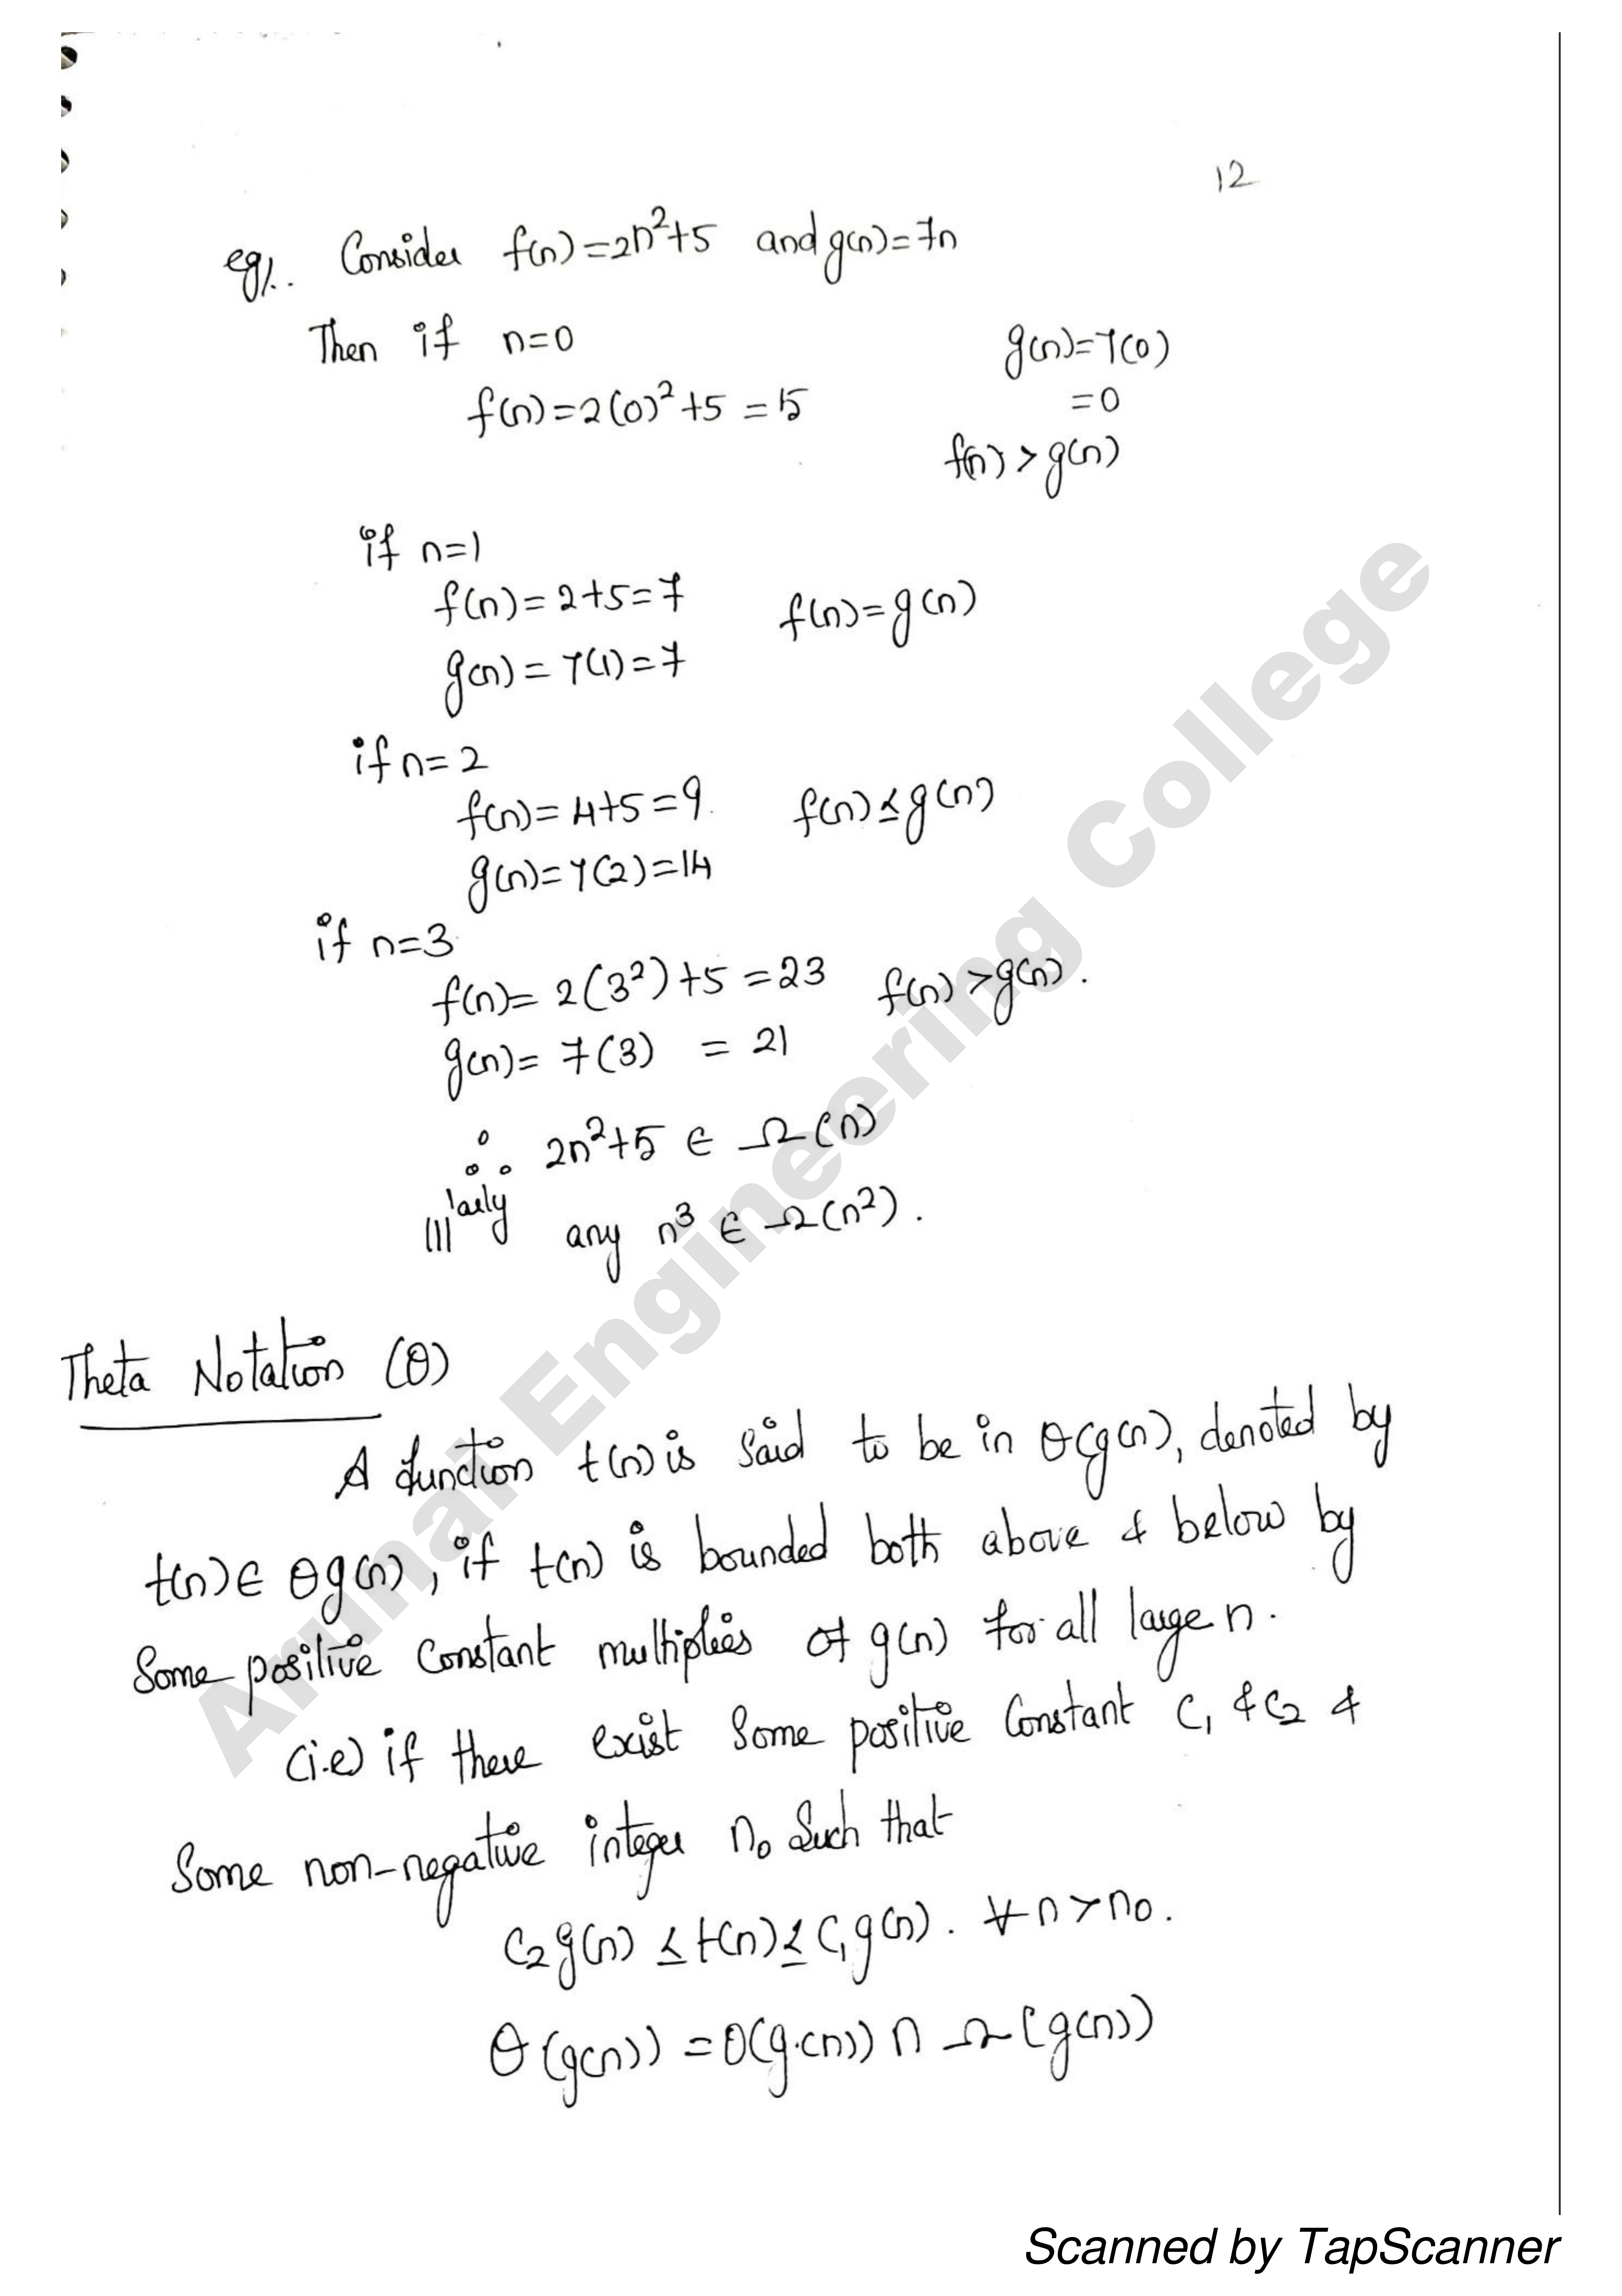 12
eg/.. Consider f(n)=2n²+5 and g(n)=7n
Then if n=0
g(n)=7(0)
f(n)=2(0)²+5 =5
=0
f(n) > g(n)
if n=1
f(n)=2+5=7 f(n)=g(n)
g(n)=7(1)=7
if n=2
f(n)=4+5=9. f(n)≤g(n)
g(n)=7(2)=14
if n=3
f(n)= 2(3²)+5 =23 f(n) >g(n).
g(n)= 7(3) = 21
∴ 2n²+5 ∈ Ω(n)
|||larly any n³ ∈ Ω(n²).
Theta Notation (θ)
A function t(n) is said to be in θ(g(n), denoted by
t(n)∈ θg(n), if t(n) is bounded both above & below by
Some positive Constant multiplies of g(n) for all large n.
(i.e) if there exist Some positive Constant C₁ & C₂ &
Some non-negative integer n₀ Such that
C₂g(n) ≤ t(n) ≤ C₁g(n). ∀ n > n₀.
θ(g(n)) = O(g(n)) ∩ Ω(g(n))
Arunai Engineering College
Scanned by TapScanner